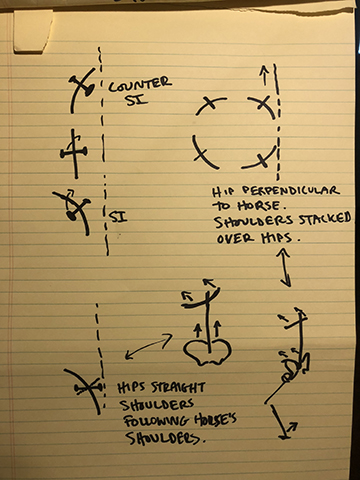 COUNTER
SI
SI
HIP PERPENDICULAR
TO HORSE.
SHOULDERS STACKED
OVER HIPS.
HIPS STRAIGHT
SHOULDERS
FOLLOWING HORSE'S
SHOULDERS.